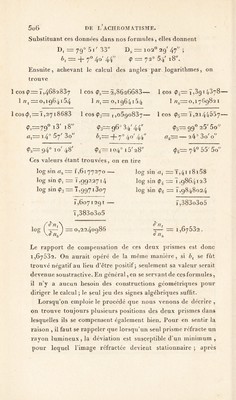 506 DE L'ACHROMATISME.
Substituant ces données dans nos formules, elles donnent
D₁ = 79° 51′ 33″ D₂ = 102° 29′ 47″ ;
b₁ = + 7° 40′ 44″ φ = 72° 54′ 18″.
Ensuite, achevant le calcul des angles par logarithmes, on
trouve
l cos φ = ī,4682837 l cos φ₁ = 2̄,8626683— l cos φ = ī,3914378—
l n₁ = 0,1964154 l n₁ = 0,1964154 l n₂ = 0,1769821
l cos φ₁ = ī,2718683 l cos φ₂ = ī,0590837— l cos φ₃ = ī,2144557—
φ₁ = 79° 13′ 18″ φ₂ = 96° 34′ 44″ φ₃ = 99° 25′ 50″
a₁ = 14° 57′ 30″ b₁ = + 7° 40′ 44″ a₂ = — 24° 30′ 0″
φ₂ = 94° 10′ 48″ φ₃ = 104° 15′ 28″ φ₄ = 74° 55′ 50″
Ces valeurs étant trouvées, on en tire
log sin a₁ = ī,6177270 — log sin a₂ = ī,4118158
log sin φ₁ = ī,9922714 log sin φ₃ = ī,9864123
log sin φ₂ = ī,9971307 log sin φ₄ = ī,9848024
ī,6071291 — ī,3830305
ī,3830305
log (∂n₁/∂n₂) = 0,2240986 ∂n₁/∂n₂ = 1,67532.
Le rapport de compensation de ces deux prismes est donc
1,67532. On aurait opéré de la même manière, si b₁ se fût
trouvé négatif au lieu d'être positif ; seulement sa valeur serait
devenue soustractive. En général, en se servant de ces formules,
il n'y a aucun besoin des constructions géométriques pour
diriger le calcul ; le seul jeu des signes algébriques suffit.
Lorsqu'on emploie le procédé que nous venons de décrire,
on trouve toujours plusieurs positions des deux prismes dans
lesquelles ils se compensent également bien. Pour en sentir la
raison, il faut se rappeler que lorsqu'un seul prisme réfracte un
rayon lumineux, la déviation est susceptible d'un minimum,
pour lequel l'image réfractée devient stationnaire ; après